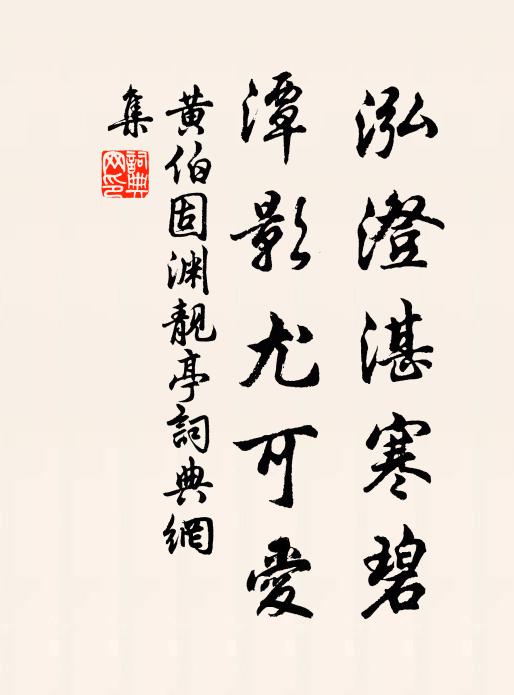 泓澄湛寒碧
潭影尤可愛
黄伯固渊靚亭詞典網
集
詞典
网印